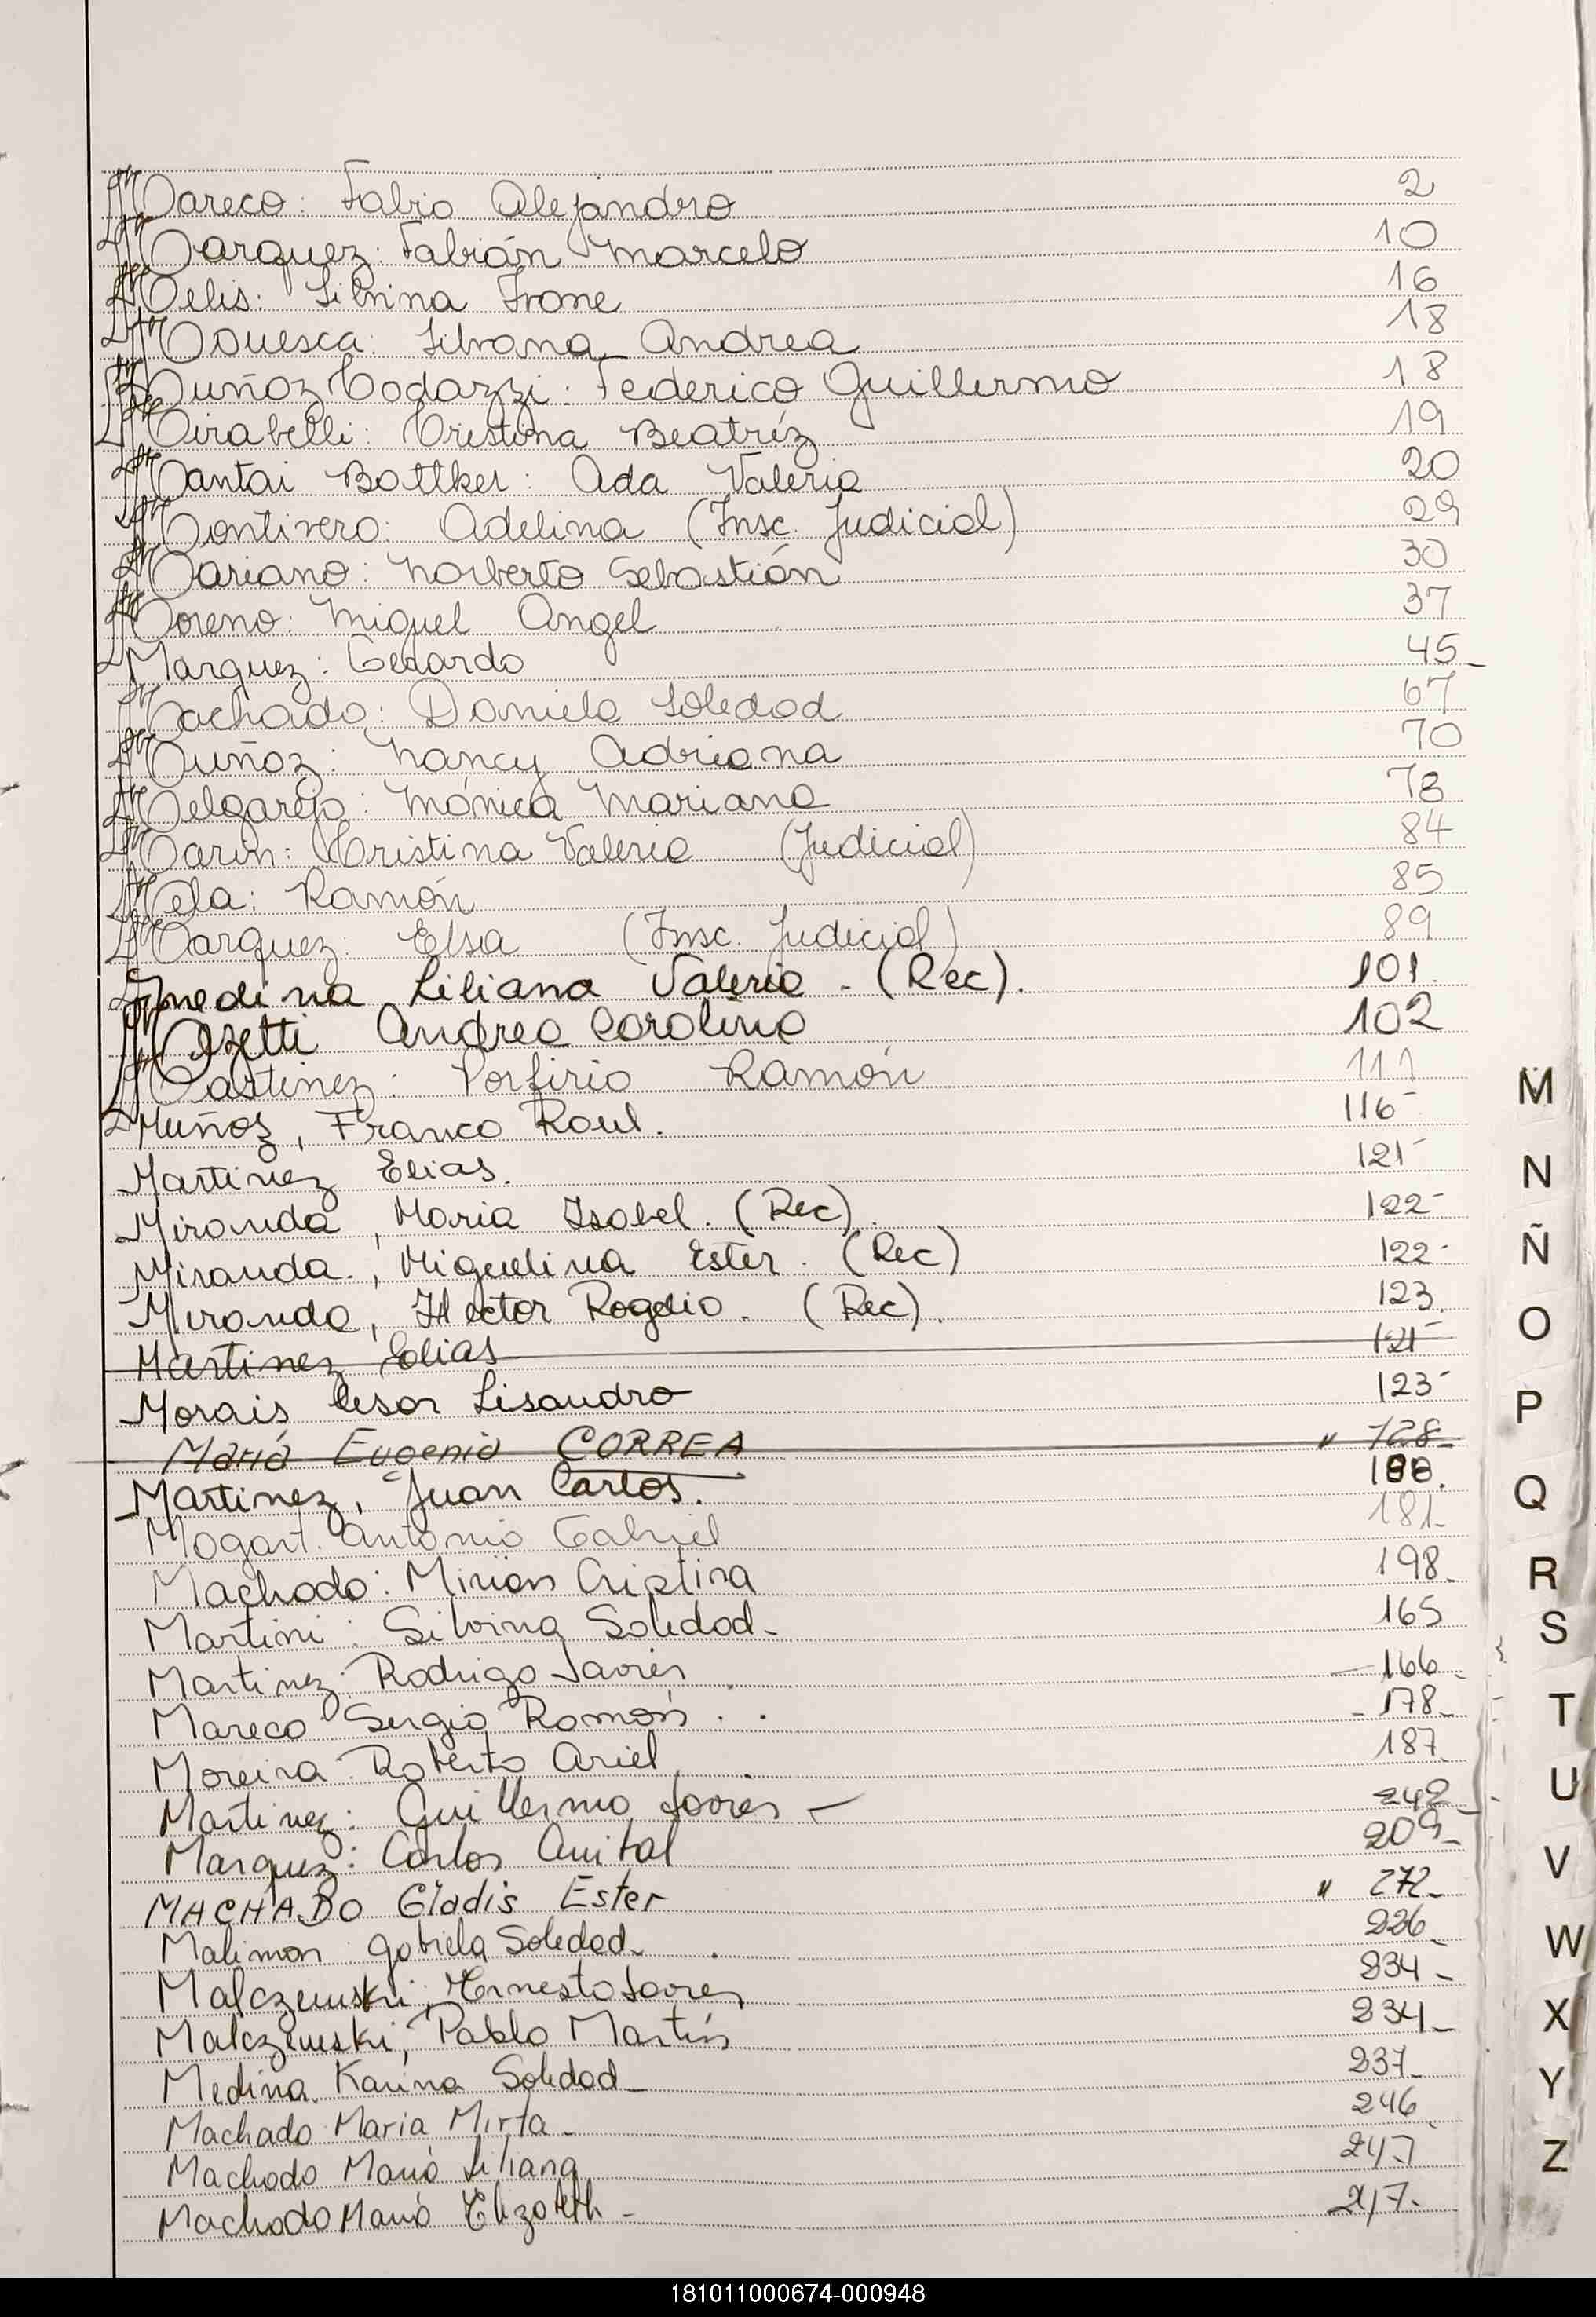 Mareco: Fabio Alejandro 2
Marquez: Fabián Marcelo 10
Melis: Silvina Irone 16
Monuesca: Silvana Andrea 18
Muñoz Codazzi: Federico Guillermo 18
Mirabelli: Cristina Beatríz 19
Mantai Bottker: Ada Valeria 20
Montivero: Adelina (Insc. Judicial) 29
Mariano: Norberto Sebastián 30
Moreno: Miguel Angel 37
Marquez: Gerardo 45
Machado: Daniela Soledad 67
Muñoz: Nancy Adriana 70
Melgarejo: Mónica Mariana 78
Marin: Cristina Valeria (Judicial) 84
Mela: Ramón 85
Marquez: Elsa (Insc. Judicial) 89
Medina Liliana Valeria - (Rec). 101.
Mozetti Andrea Carolina 102
Martinez: Porfirio Ramón 111
Muñoz, Franco Raul. 116-
Martinez Elias. 121-
Miranda, Maria Isabel. (Rec). 122-
Miranda., Miguelina Ester. (Rec) 122-
Miranda, Hector Rogelio. (Rec). 123.
Martinez Elias 121-
Morais Cesar Lisandro 123-
Maria Eugenia CORREA " 128-
Martinez, Juan Carlos.
Mogart. Antonio Gabriel 181-
Machado: Mirian Cristina 198-
Martini: Silvina Soledad- 165
Martinez: Rodrigo Javier 166-
Mareco Sergio Ramón. - 178-
Moreira Roberto Ariel 187-
Martinez: Guillermo Javier - 242
Marquez: Carlos Anibal 209-
MACHADO Gladis Ester " 272-
Maliman Gabriela Soledad- 226-
Malczewski; Hernesto Javier 234-
Malczewski, Pablo Martín 234-
Medina Karina Soledad- 237-
Machado Maria Mirta- 246
Machado María Liliana 247
Machado María Elizabeth- 247-
M
N
Ñ
O
P
Q
R
S
T
U
V
W
X
Y
Z
181011000674-000948